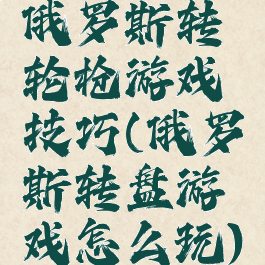 俄罗斯转
轮枪游戏
技巧(俄罗
斯转盘游
戏怎么玩)